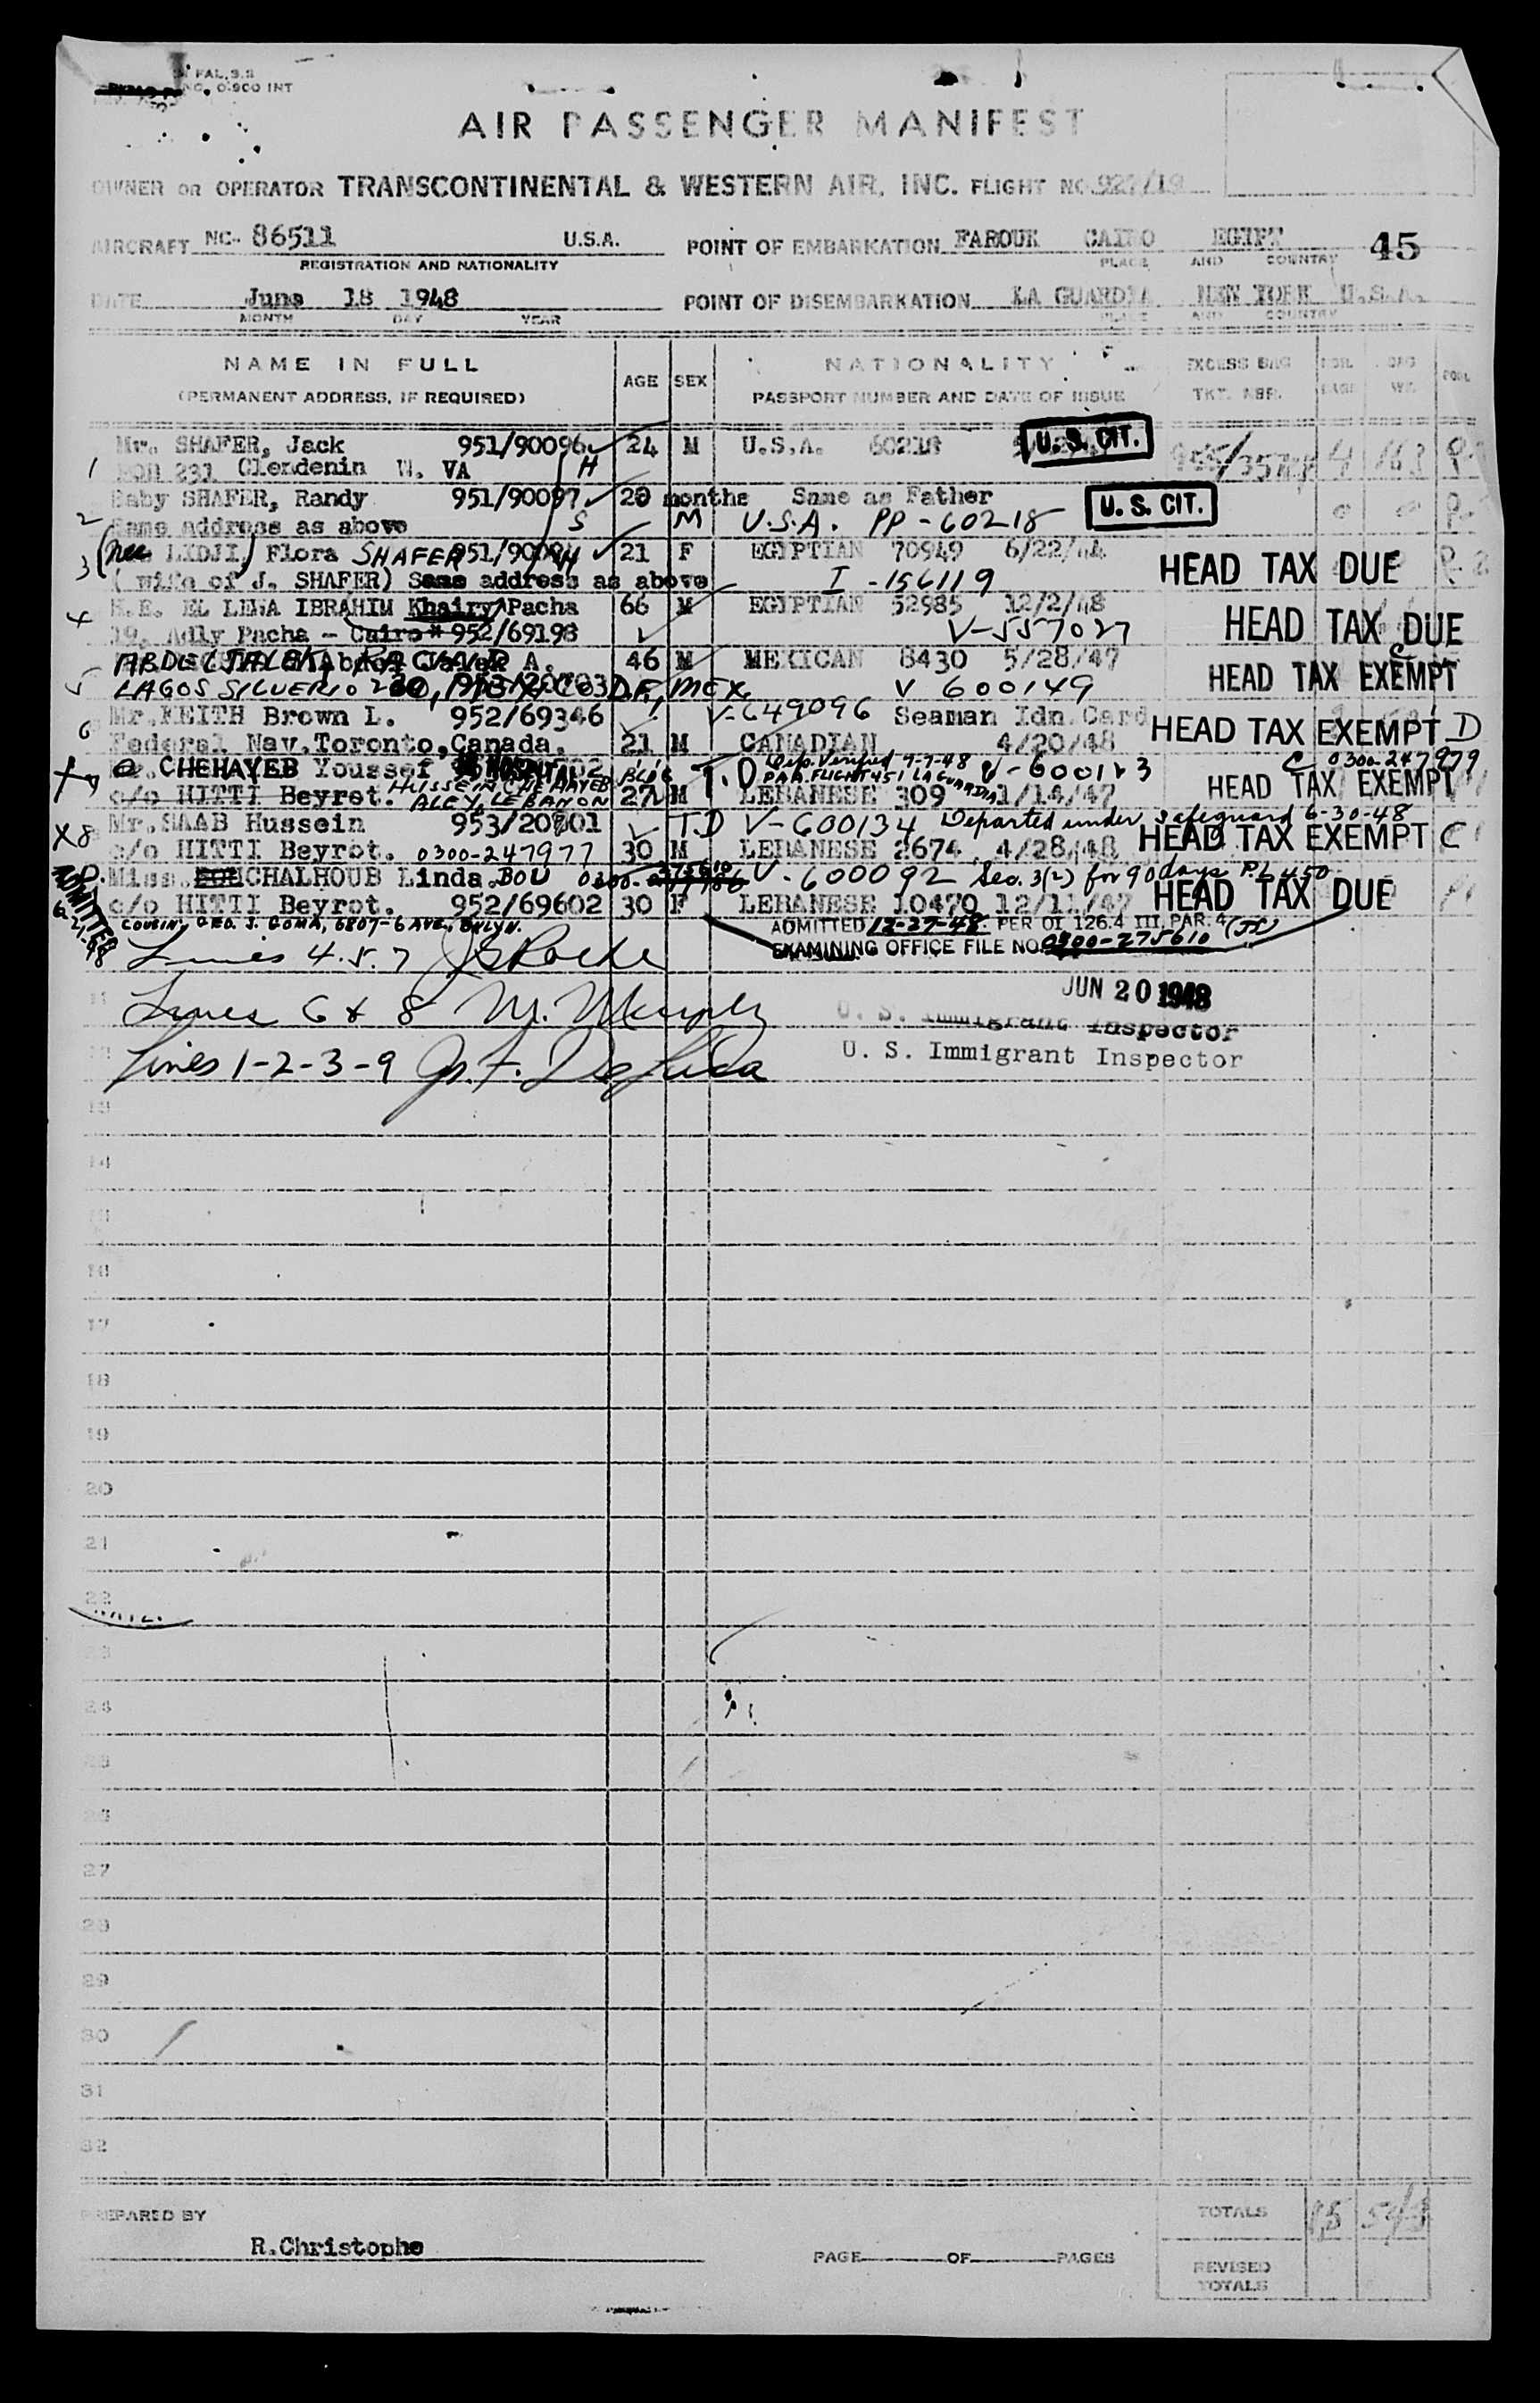 AIR PASSENGER MANIFEST
OWNER OR OPERATOR TRANSCONTINENTAL & WESTERN AIR, INC. FLIGHT NO.
AIRCRAFT NC- 86511 U.S.A. POINT OF EMBARKATION FAROUK CAIRO EGYPT 45
REGISTRATION AND NATIONALITY PLACE AND COUNTRY
DATE June 18 1948 POINT OF DISEMBARKATION LA GUARDIA NEW YORK U.S.A.
MONTH DAY YEAR PLACE AND COUNTRY
NAME IN FULL AGE SEX NATIONALITY EXCESS BAG
(PERMANENT ADDRESS, IF REQUIRED) PASSPORT NUMBER AND DATE OF ISSUE TKT. NBR.
Mr. SHAFER, Jack 951/90096 24 M U.S.A. 60218 U.S. CIT.
1 BOX 231 Clendenin W. VA H
Baby SHAFER, Randy 951/90097 20 months Same as Father U.S. CIT.
2 Same address as above S M U.S.A. PP-60218
3 (nee LIDJI) Flora SHAFER 21 F EGYPTIAN 70949 6/22/44 HEAD TAX DUE
( wife of J. SHAFER) Same address as above I-156119
4 H.E. EL LEWA IBRAHIM Khairy Pacha 66 M EGYPTIAN 52985 12/2/48 HEAD TAX DUE
19, Adly Pacha - Cairo * 952/69198 V-557027
ABDELJALEK, RACHID A. 46 M MEXICAN 8430 5/28/47 HEAD TAX EXEMPT C
5 LAGOS SILVERIO MEXICO D.F., MEX. V 600149
6 Mr. KEITH Brown L. 952/69346 V-649096 Seaman Idn. Card HEAD TAX EXEMPT D
Federal Nav. Toronto, Canada. 21 M CANADIAN 4/20/48
CHEHAYEB Youssef HOSPITAL BLDG T.D Dep. Verified 7-7-48 V-600123 C 0300-247979
c/o HITTI Beyrot. HUSSEIN CHEHAYEB 27 M PAA FLIGHT 451 LAGUARDIA LEBANESE 309 1/14/47 HEAD TAX EXEMPT
ALEY, LEBANON
X 8 Mr. SAAB Hussein 953/20801 T.D V-600134 Departed under safeguard 6-30-48
c/o HITTI Beyrot. 0300-247977 30 M LEBANESE 2674 4/28/48 HEAD TAX EXEMPT C
Miss. CHALHOUB Linda. BOU V-600092 Sec. 3(2) for 90 days
c/o HITTI Beyrot. 952/69602 30 F LEBANESE 10470 12/11/47 HEAD TAX DUE
ADMITTED
COUSIN, GEO. J. GOMA, 6807-6 AVE., BKLYN. ADMITTED 12-27-48 PER OI 126.4 III, PAR. 4
EXAMINING OFFICE FILE NO. 0300-275610
Lines 4.5.7
11 JUN 20 1948
Lines 6 & 8 M. Murphy U. S. Immigrant Inspector
12 U. S. Immigrant Inspector
Lines 1-2-3-9
13
14
15
16
17
18
19
20
21
22
23
24
25
26
27
28
29
30
31
32
PREPARED BY TOTALS
R.Christophe
PAGE OF PAGES
REVISED
TOTALS